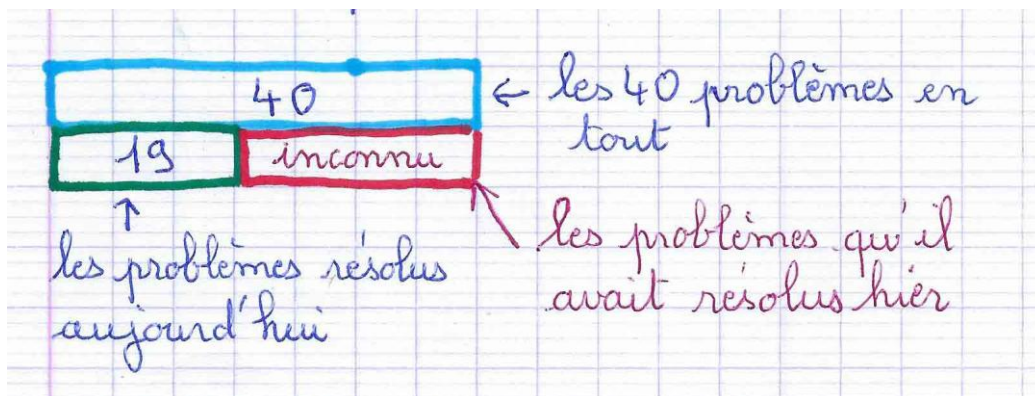 40
← les 40 problèmes en
tout
19
inconnu
↑
les problèmes résolus
aujourd'hui
les problèmes qu'il
avait résolus hier